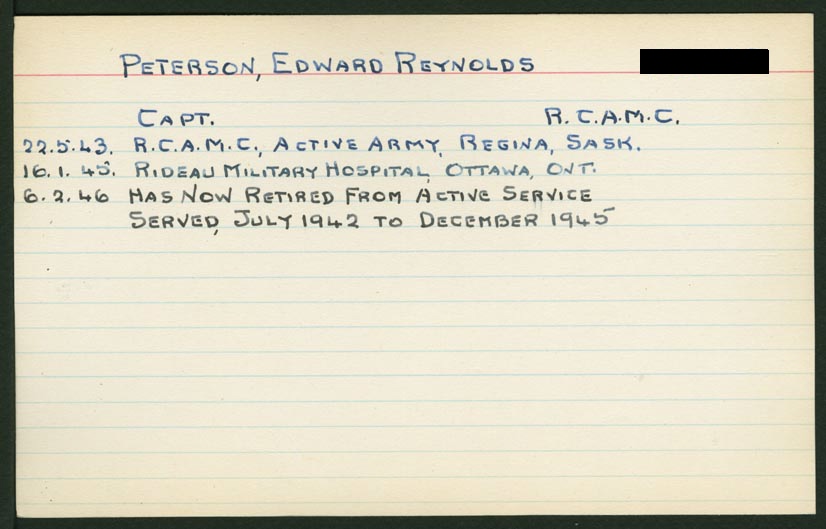 PETERSON, EDWARD REYNOLDS
CAPT. R.C.A.M.C.
22.5.43. R.C.A.M.C., ACTIVE ARMY, REGINA, SASK.
16.1.45. RIDEAU MILITARY HOSPITAL, OTTAWA, ONT.
6.2.46 HAS NOW RETIRED FROM ACTIVE SERVICE
SERVED, JULY 1942 TO DECEMBER 1945